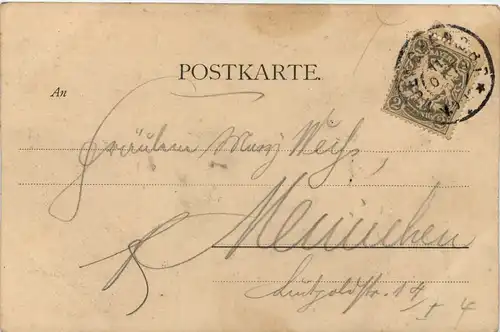 POSTKARTE.
An
Fräulein Mary Weiß,
München
Luitpoldstr. 14
I 4